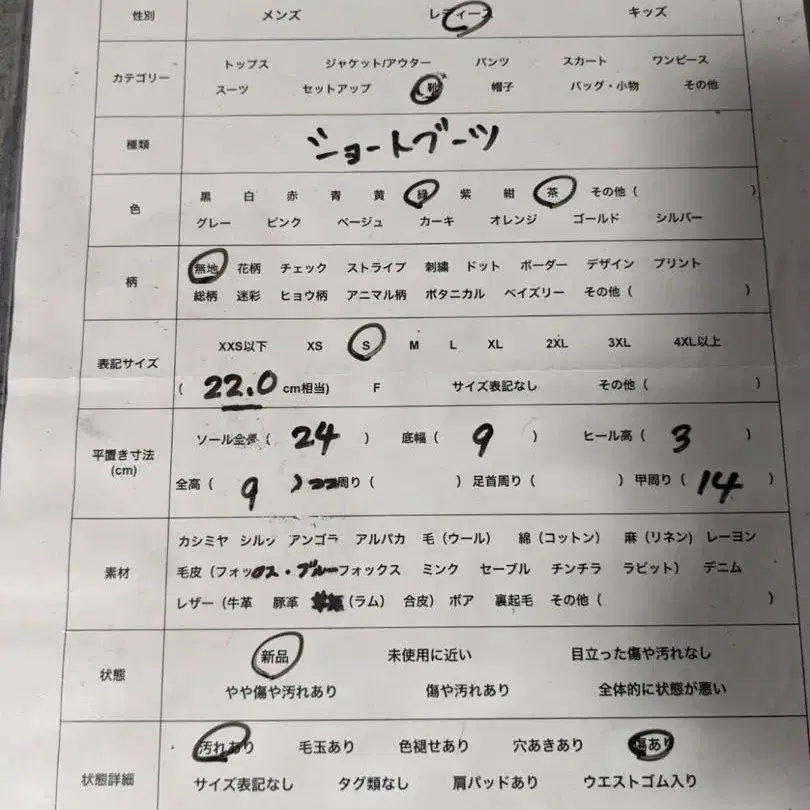 性別 メンズ レディース キッズ
カテゴリー
トップス ジャケット/アウター パンツ スカート ワンピース
スーツ セットアップ 靴 帽子 バッグ・小物 その他
種類 ショートブーツ
色
黒 白 赤 青 黄 緑 紫 紺 茶 その他 ( )
グレー ピンク ベージュ カーキ オレンジ ゴールド シルバー
柄
無地 花柄 チェック ストライプ 刺繍 ドット ボーダー デザイン プリント
総柄 迷彩 ヒョウ柄 アニマル柄 ボタニカル ペイズリー その他 ( )
表記サイズ
XXS以下 XS S M L XL 2XL 3XL 4XL以上
( 22.0 cm相当) F サイズ表記なし その他 ( )
平置き寸法
(cm)
ソール全長 ( 24 ) 底幅 ( 9 ) ヒール高 ( 3 )
全高 ( 9 ) 周り ( ) 足首周り ( ) 甲周り ( 14 )
素材
カシミヤ シルク アンゴラ アルパカ 毛 (ウール) 綿 (コットン) 麻 (リネン) レーヨン
毛皮 (フォックス・ブルーフォックス ミンク セーブル チンチラ ラビット) デニム
レザー (牛革 豚革 (ラム) 合皮) ボア 裏起毛 その他 ( )
状態
新品 未使用に近い 目立った傷や汚れなし
やや傷や汚れあり 傷や汚れあり 全体的に状態が悪い
状態詳細
汚れあり 毛玉あり 色褪せあり 穴あきあり 傷あり
サイズ表記なし タグ類なし 肩パッドあり ウエストゴム入り